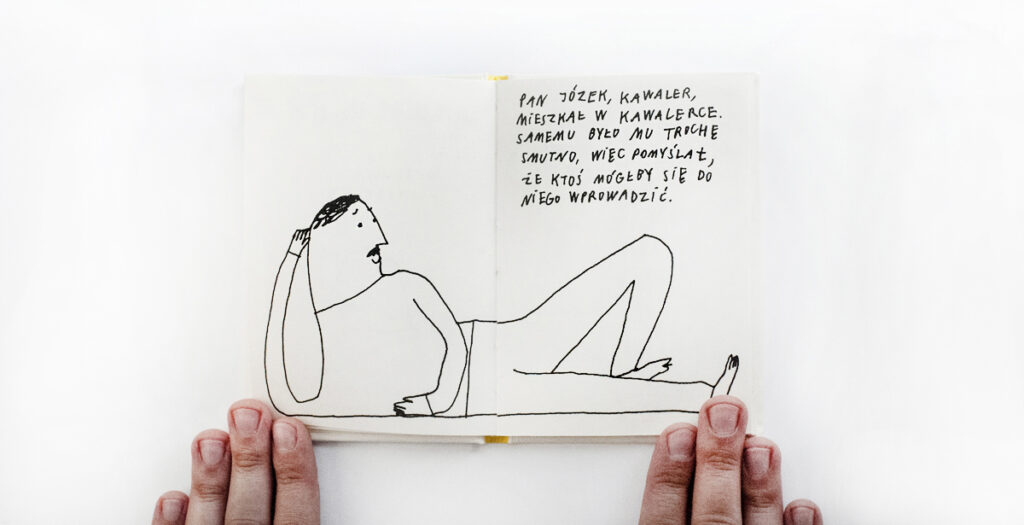 PAN JÓZEK, KAWALER,
MIESZKAŁ W KAWALERCE.
SAMEMU BYŁO MU TROCHĘ
SMUTNO, WIĘC POMYŚLAŁ,
ŻE KTOŚ MÓGŁBY SIĘ DO
NIEGO WPROWADZIĆ.